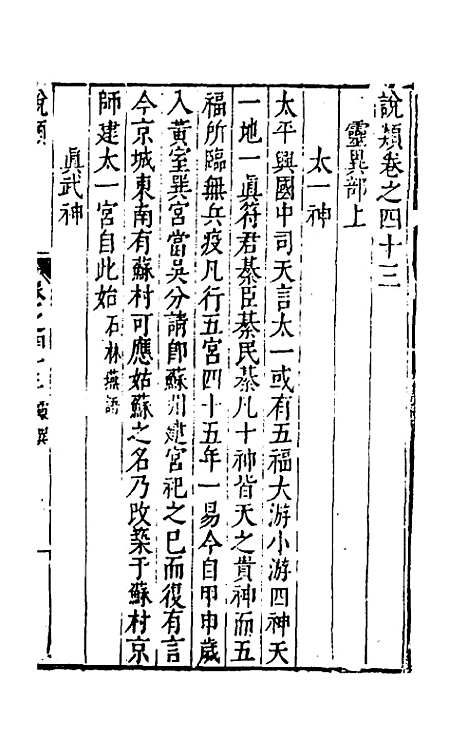 說類卷之四十三
靈異部上
太一神
太平興國中司天言太一或有五福大游小游四神天
一地一眞符君綦臣綦民綦凡十神皆天之貴神而五
福所臨無兵疫凡行五宮四十五年一易今自甲申歲
入黃室巽宮當吳分請卽蘇州建宮祀之已而復有言
今京城東南有蘇村可應姑蘇之名乃改築于蘇村京
師建太一宮自此始 石林燕語
眞武神
說類